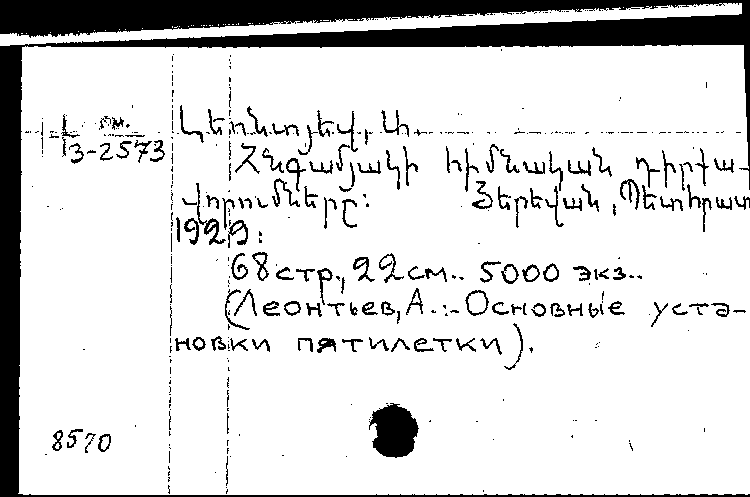 Լեոնտյեվ, Ա.
3-2573
Հնգամյակի հիմնական դիրքա-
վորումները: Յերեվան, Պետհրատ
1929:
68 стр., 22 см.. 5000 экз..
(Леонтьев, А.:-Основные уста-
новки пятилетки).
8570